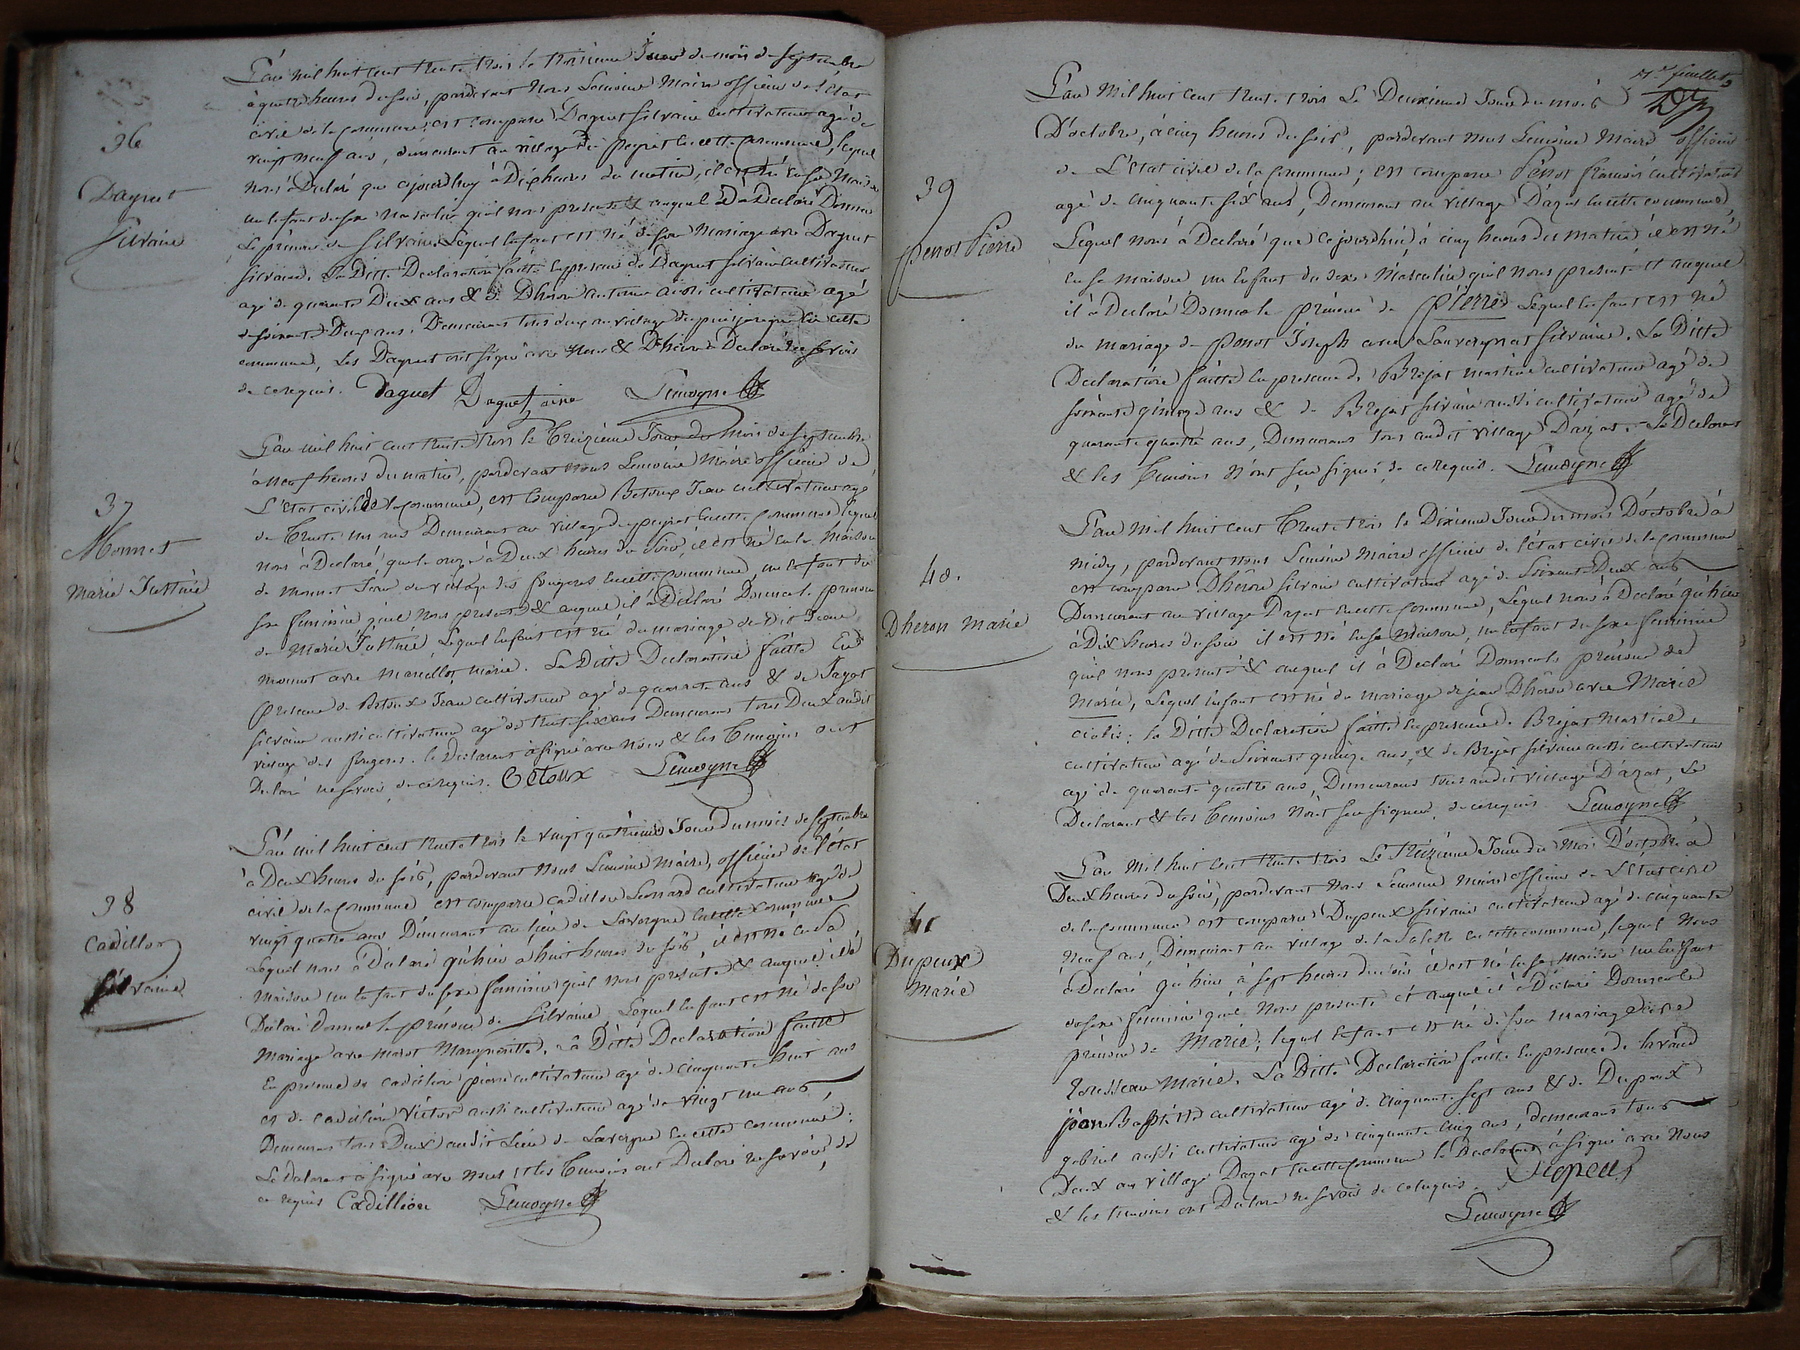 L'an mil huit cent trente trois le troisieme Jour du mois de septembre
à quatre heures du soir, pardevant Nous Lemoine Maire officier de l'état
civil de la Commune, est comparu Daguet Silvain cultivateur agé de
vingt neuf ans, demeurant au village du peyrat en cette Commune, lequel
nous à Declaré que cejourdhuy à Dix heures du matin, il est né en sa Maison
un Enfant du sexe masculin qu'il nous presente & auquel il à Declaré Donner
Le prénom de Silvain Lequel Enfant est né de son Mariage avec Daguet
Silvaine. La Ditte Declaration faitte En presence de Daguet Silvain Cultivateur
agé de quarante Deux ans & de Dheron antoine aussi cultivateur agé
de soixante Deux ans, Demeurans tous deux au village du en cette
commune, Les Daguet ont signé avec Nous & Dheron à Declaré ne savoir
de ce requis. Daguet Daguet Lemoyne
36
Daguet
Silvaine
L'an mil huit cent trente trois le treizieme Jour du Mois de septembre
à neuf heures du matin, pardevant nous Lemoine Maire officier de
L'Etat civil de la Commune, est Comparu Betoux Jean cultivateur agé
de Trente un ans Demeurant au village du peyrat en cette Commune Lequel
nous à Declaré, que le onze à Deux heures du Soir, il est né En la Maison
de Monnet Jean du village des fougeres en cette Commune, un Enfant du
sexe feminin qu'il Nous presente & auquel il à Declaré Donner le prénom
de Marie Justine, Lequel Enfant est né du mariage du dit Jean
monnet avec Marie. La Ditte Declaration faitte En
presence de Betoux Jean cultivateur agé de quarante ans & de Jagot
Silvain aussi cultivateur agé de trente six ans Demeurans tous Deux audit
village des fougeres. le Declarant à signé avec Nous & les Temoins ont
Declaré ne savoir de ce requis. Betoux Lemoyne
37
Monnet
Marie Justine
L'an mil huit cent trente trois le vingt quatrieme Jour du mois de septembre
à Deux heures du soir, pardevant Nous Lemoine Maire, officier de l'état
civil de la Commune est comparu Cadillon Leonard cultivateur agé de
vingt quatre ans Demeurant au lieu de Lavergne en cette commune
Lequel nous à Declaré qu'hier à huit heures du soir il est né en sa
maison un Enfant du sexe feminin qu'il nous presente & auquel il à
Declaré Donner le prénom de Silvaine Lequel enfant est né de son
Mariage avec marot Margueritte. La Ditte Declaration faitte
En presence de cadillon pierre cultivateur agé de cinquante huit ans
et de cadillon Victor aussi cultivateur agé de vingt un ans,
Demeurans tous Deux audit Lieu de Lavergne en cette commune.
Le Declarant à signé avec nous & les Temoins ont Declaré ne savoir de
ce requis Cadillion Lemoyne
38
Cadillon
Silvaine
L'an Mil huit cent trente trois Le Deuxieme Jour du mois
D'octobre, à cinq heures du soir, pardevant nous Lemoine Maire officier
de L'Etat civil de la Commune; est comparu Penot francois cultivateur
agé de cinquante six ans, Demeurant au village D'azat en cette commune
Lequel nous à Declaré que cejourdhui à cinq heures du matin il est né
En sa maison un Enfant du sexe Masculin qu'il nous presente et auquel
il à Declaré Donner le prénom de Pierre Lequel Enfant est né
du mariage de penot Joseph avec Lauvergnat Silvaine. La Ditte
Declaration faitte En presence de Brejat martin cultivateur agé de
soixante quinze ans & de Brejat Silvain aussi cultivateur agé de
quarante quatre ans, Demeurans tous audit village D'azat. Le Declarant
& les Temoins N'ont seu signer de ce requis. Lemoyne
feuillet
39
Penot Pierre
L'an Mil huit cent Trente trois le Dixieme Jour du mois D'octobre à
midy, pardevant nous Lemoine Maire officier de l'état civil de la Commune
est comparu Dhéron Silvain cultivateur agé de Soixante Deux ans
Demeurant au village Dazat en cette Commune, Lequel nous à Declaré qu'hier
à Dix heures du soir il est né En sa Maison, un Enfant du sexe feminin
qu'il nous presente & auquel il à Declaré Donner le prénom de
Marie, Lequel Enfant est né du mariage de jean Dhéron avec Marie
. La Ditte Declaration faitte En presence de Brejat Martial,
cultivateur agé de Soixante quinze ans, & de Brejat Silvain aussi cultivateur
agé de quarante quatre ans, Demeurans tous audit village D'azat, Le
Declarant & les Temoins N'ont seu signer de ce requis Lemoyne
40.
Dheron Marie
L'an Mil huit cent trente trois Le treizieme Jour du Mois D'octobre à
Deux heures du soir, pardevant Nous Lemoine Maire officier de L'état civil
de la Commune est comparu Dupeux Silvain cultivateur agé de cinquante
neuf ans, Demeurant au village de la en cette commune, lequel Nous
à Declaré qu'hier à sept heures du soir il est né En sa Maison un Enfant
du sexe feminin qu'il Nous presente et auquel il à Declaré Donner le
prénom de Marie, lequel Enfant est né de son mariage avec
Rousseau Marie. La Ditte Declaration faitte En presence de
jean Baptiste cultivateur agé de cinquante sept ans & de Dupeux
gabriel aussi cultivateur agé de cinquante cinq ans, demeurans tous
Deux au village Dazat en cette Commune le Declarant à signé avec Nous
& les temoins ont Declaré ne savoir de ce requis. Dupeux
Lemoyne
41
Dupeux
Marie